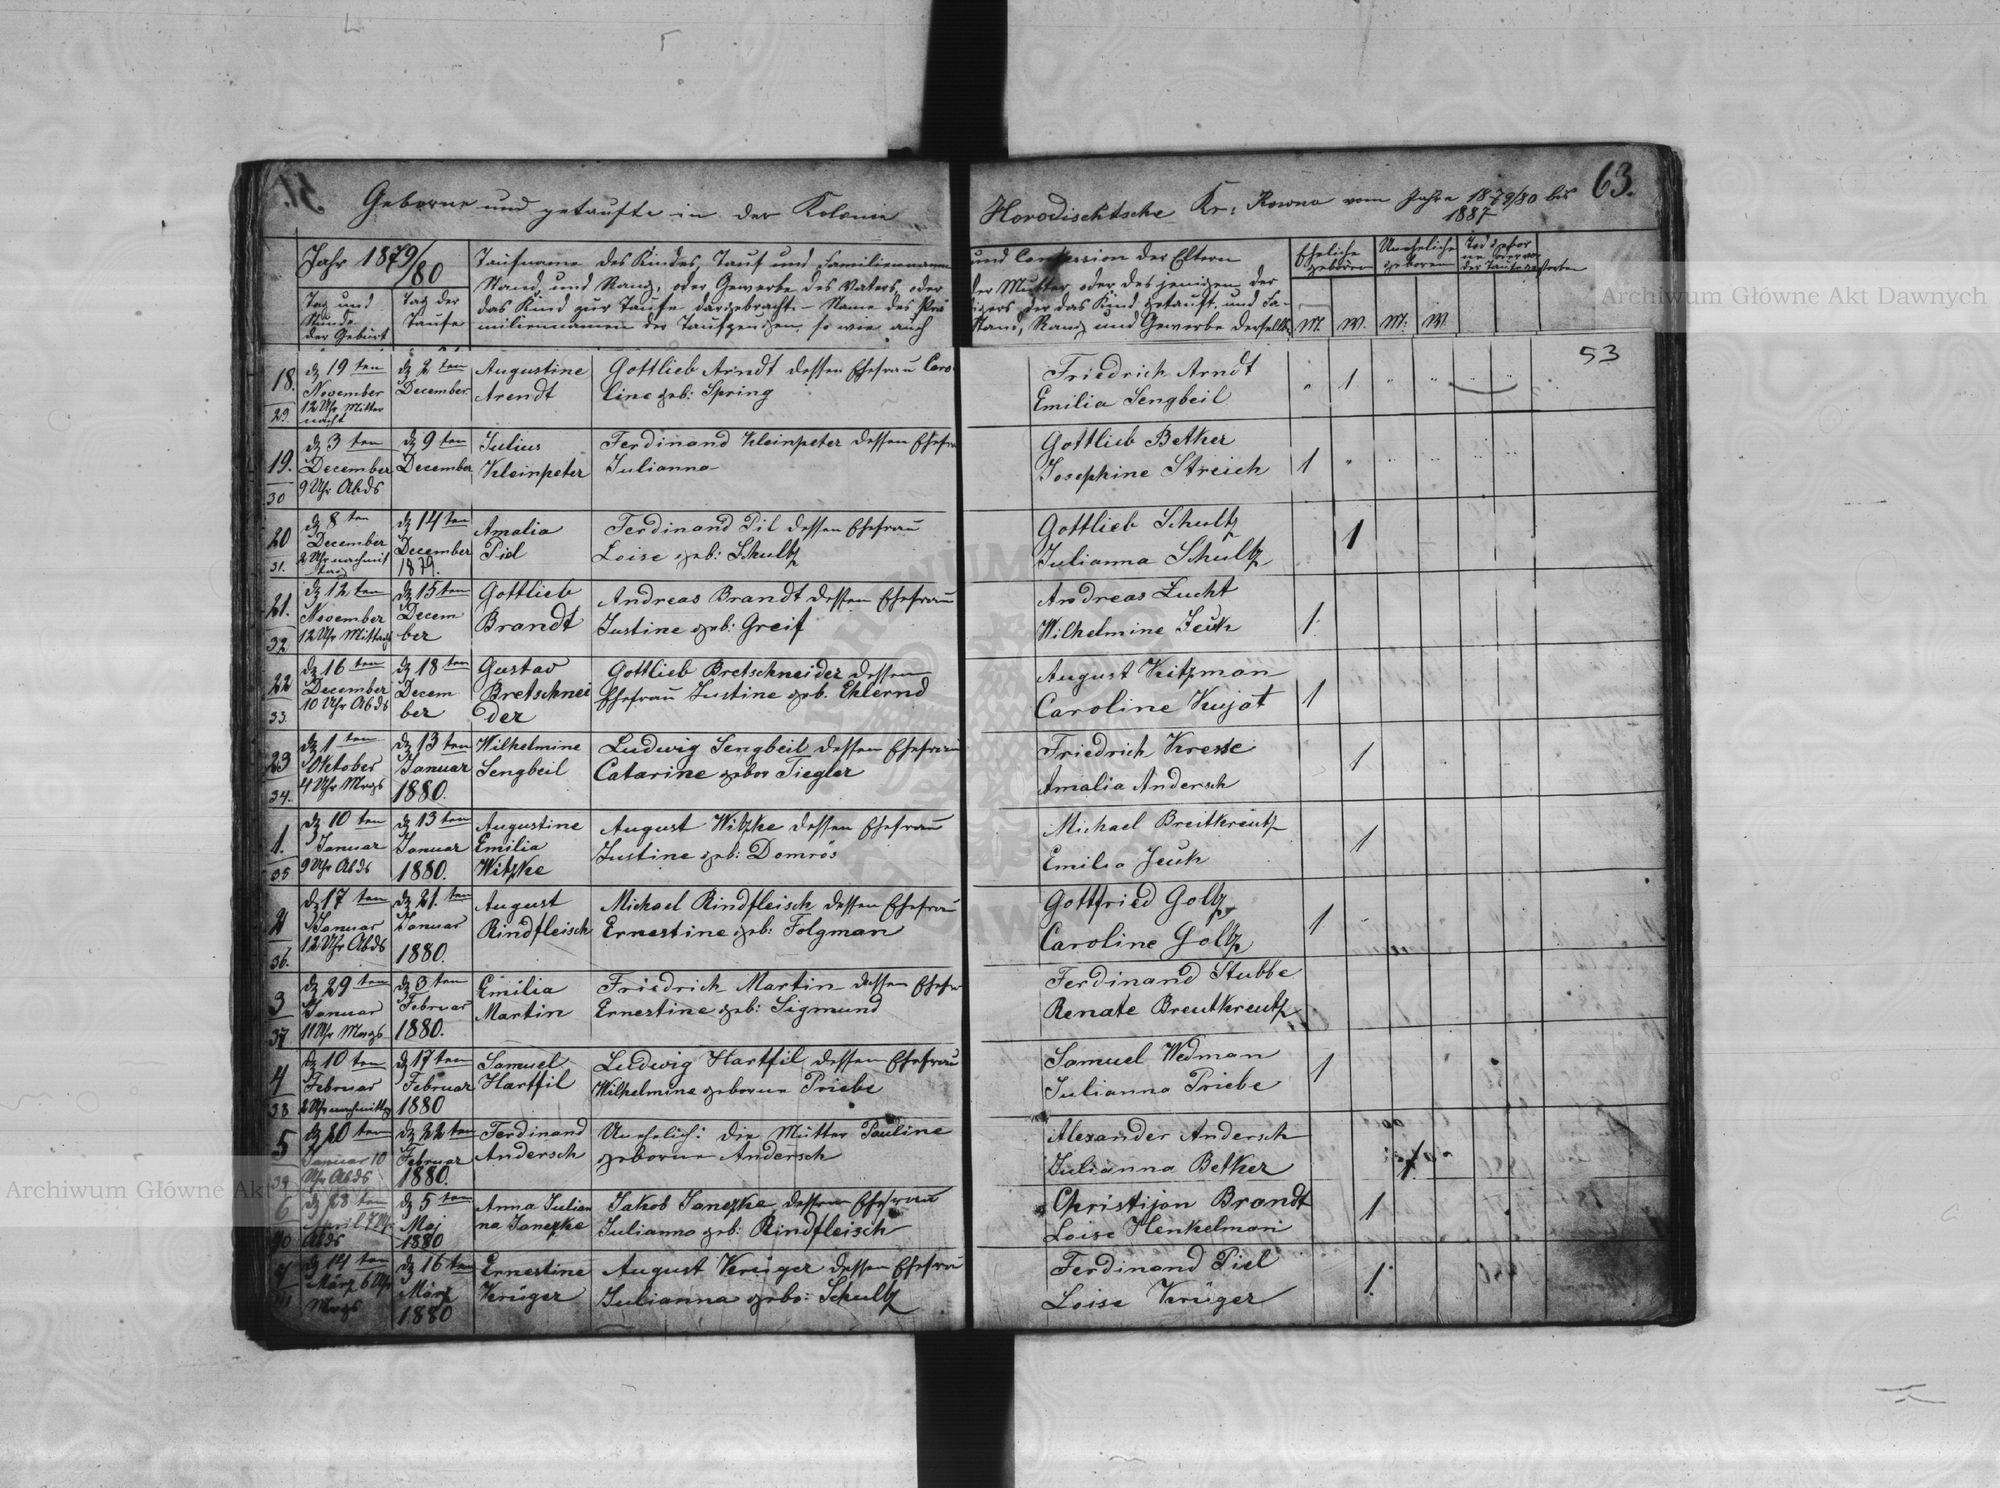 63.
Geborne und getaufte in der Kolonie Horodischtsche Kr: Rowno vom Jahre 1879/80 bis
1887
Jahr 1879/80
Tag und
Stunde
der Geburt
Tag der
Taufe
Taufname des Kindes, Tauf und Familiennamen und Confession der Eltern
Stand und Rang, oder Gewerbe des Vaters, oder der Mutter oder des jenigen der
das Kind zur Taufe dargebracht. Name des der das Kind getauft, und Fa-
miliennamen der Taufzeugen, so wie auch Stand, Rang und Gewerbe
Eheliche
geboren
Uneheliche
geboren
M. W. M: W.
53
18.
29.
dz 19 ten
November
12 Uhr Mitter
nacht
dz 2 ten
December
Augustine
Arendt
Gottlieb Arndt dessen Ehefrau Caro
line geb: Spring
Friedrich Arndt
Emilia Sengbeil
1
19.
30
dz 3 ten
December
9 Uhr Abds
dz 9 ten
December
Julius
Kleinpeter
Ferdinand Kleinpeter dessen Ehefr
Julianna
Gottlieb Betker
Josephine Streich
1
20
31.
dz 8 ten
December
2 Uhr nachmit
tag
dz 14 ten
December
1879.
Amalia
Piel
Ferdinand Pil dessen Ehefrau
Loise geb: Schultz
Gottlieb Schultz
Julianna Schultz
1
21.
32
dz 12 ten
November
12 Uhr Mittag
dz 15 ten
Decem
ber
Gottlieb
Brandt
Andreas Brandt dessen Ehefrau
Justine geb: Greif
Andreas Lucht
Wilhelmine Jeük
1.
22
33.
dz 16 ten
December
10 Uhr Abds
dz 18 ten
Decem
ber
Gustav
Bretschnei
der
Gottlieb Bretschneider dessen
Ehefrau Justine geb. Ehlernd
August Kitzman
Caroline Kujat
1
23
34.
dz 1 ten
Oktober
4 Uhr Mrgs
dz 13 ten
Januar
1880.
Wilhelmine
Sengbeil
Ludwig Sengbeil dessen Ehefrau
Catarine gebor Tiegler
Friedrich Kresse
Amalia Andersch
1
1.
35
dz 10 ten
Januar
9 Uhr Abds
dz 13 ten
Januar
1880.
Augustine
Emilia
Witzke
August Witzke dessen Ehefrau
Justine geb: Domrös
Michael Breitkreutz
Emilia Jeük
1
2
36.
dz 17 ten
Januar
12 Uhr Abds
dz 21. ten
Januar
1880.
August
Rindfleisch
Michael Rindfleisch dessen Ehefrau
Ernestine geb: Folgman
Gottfried Goltz
Caroline Goltz
1
3
37
dz 29 ten
Januar
11 Uhr Mrgs
dz 3 ten
Februar
1880.
Emilia
Martin
Friedrich Martin dessen Ehefr
Ernestine geb: Sigmund
Ferdinand Stubbe
Renate Breutkreutz
4
38
dz 10 ten
Februar
2 Uhr nachmittag
dz 17 ten
Februar
1880
Samuel
Hartfil
Ludwig Hartfil dessen Ehefrau
Wilhelmine geborne Priebe
Samuel Wedman
Julianna Priebe
1
5
39
dz 20 ten
Januar 10
Uhr Abds
dz 22 ten
Februar
1880.
Ferdinand
Andersch
Unehelich: die Mutter Pauline
geborne Andersch
Alexander Andersch
Julianna Betker
1.
6
40
dz 28 ten
April 7 Uhr
Abds
dz 5 ten
Maj
1880
Anna Julian
na Janezke
Jakob Janezke dessen Ehefrau
Julianna geb: Rindfleisch
Christijan Brandt
Loise Henkelman
1
7
41
dz 14 ten
März 6 Uhr
Mrgs
dz 16 ten
März
1880
Ernestine
Krüger
August Krüger dessen Ehefrau
Julianna gebo: Schultz
Ferdinand Piel
Loise Krüger
1.
Archiwum Główne Akt Dawnych
Archiwum Główne Akt